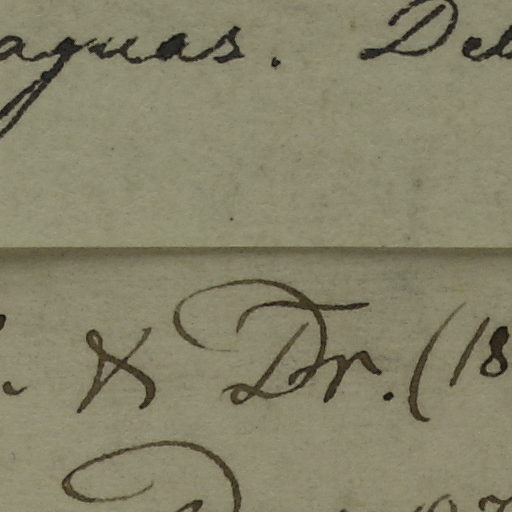 aguas. Del
& Dr. (18